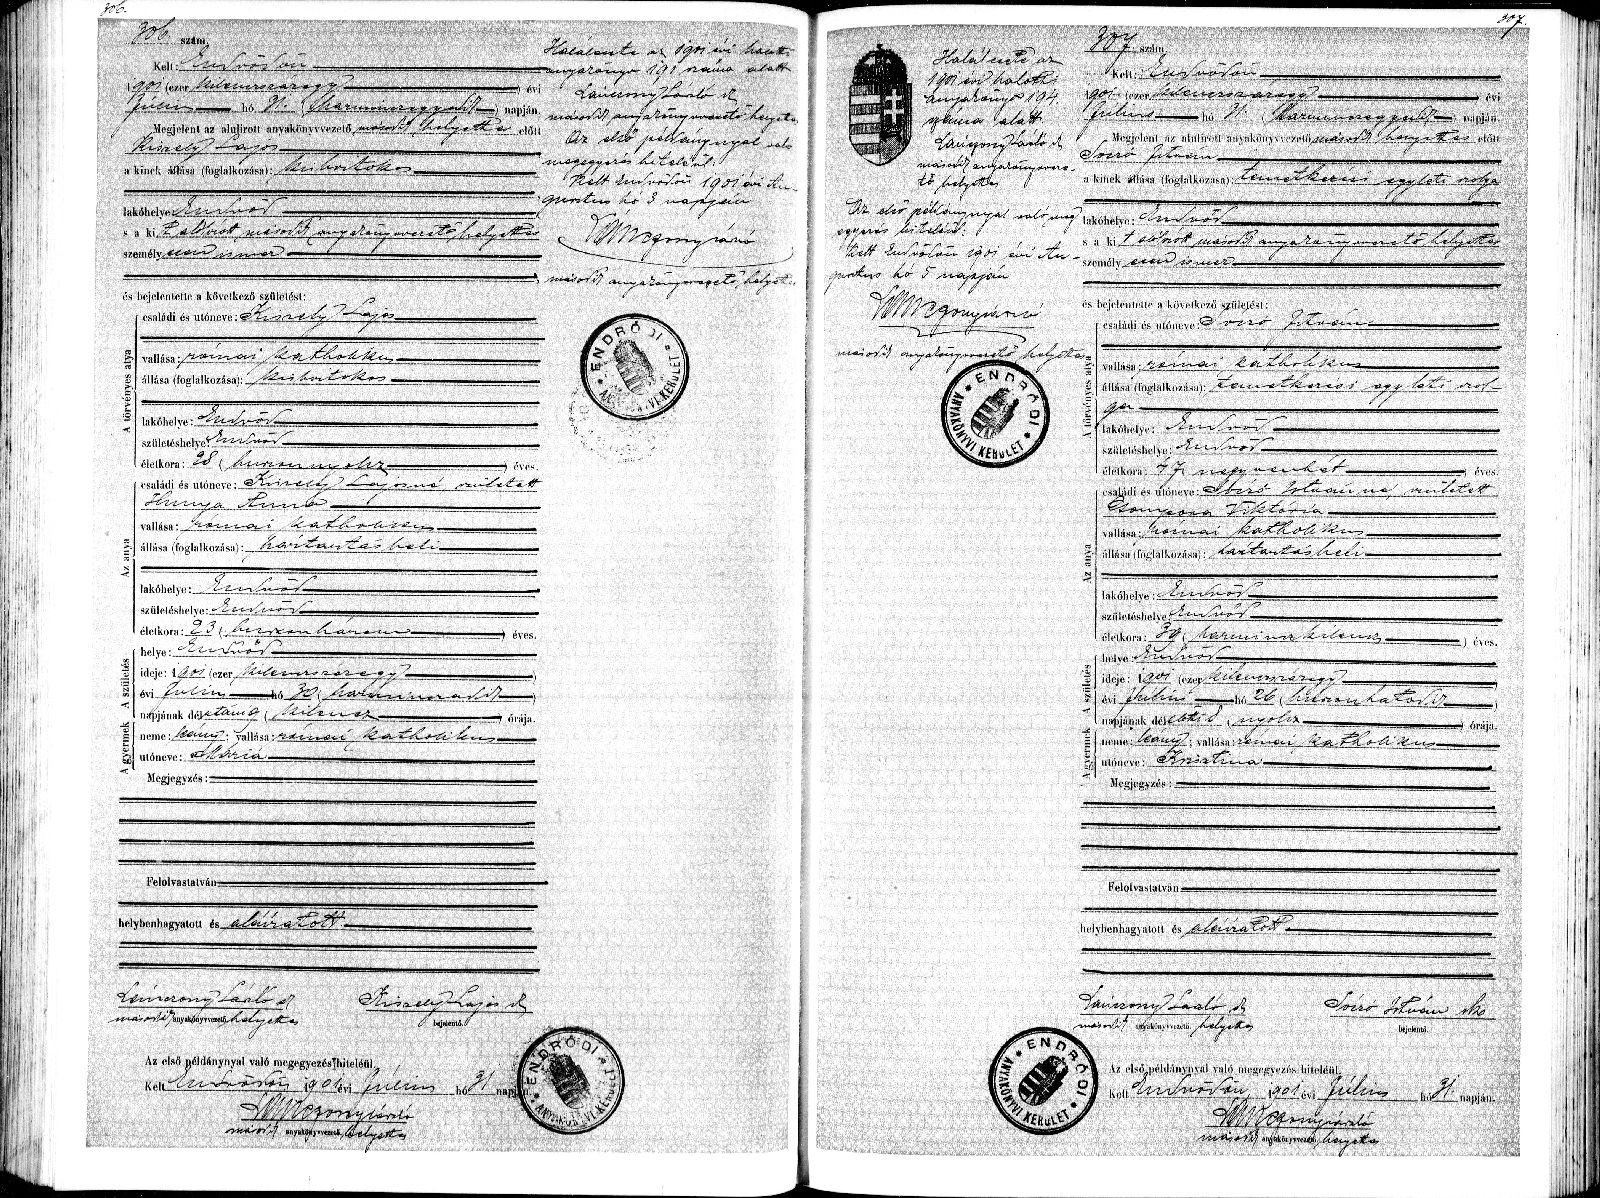 306.
306. szám.
Kelt: Endrődön
1901 (ezer kilencszázegy) évi
Julius hó 31. (Harminczegyedik) napján.
Megjelent az alulirott anyakönyvvezető, másod helyettes előtt
Kiszely Lajos
a kinek állása (foglalkozása): kisbirtokos
lakóhelye: Endrőd
s a ki t alólirott másod anyakönyvvezető helyettes
személyesen ismer
és bejelentette a következő születést:
A törvényes atya
családi és utóneve: Kiszely Lajos
vallása: római katholikus
állása (foglalkozása): kisbirtokos
lakóhelye: Endrőd
születéshelye: Endrőd
életkora: 28 (huszonnyolcz) éves.
Az anya
családi és utóneve: Kiszely Lajosné született
Hunya Anna
vallása: római katholikus
állása (foglalkozása): háztartásbeli
lakóhelye: Endrőd
születéshelye: Endrőd
életkora: 23 (huszonhárom) éves.
A születés
helye: Endrőd
ideje: 1901 (ezer kilencszázegy)
évi Julius hó 30 (harminczadik)
napjának délutáni (kilencz) órája.
A gyermek
neme: leány; vallása: római katholikus
utóneve: Mária
Megjegyzés:
Felolvastatván
helybenhagyatott és aláiratott
László
másod anyakönyvvezető helyettes
Kiszely Lajos
bejelentő.
Az első példánynyal való megegyezés hiteléül.
Kelt Endrődön 1901 évi Julius hó 31 napján
másod anyakönyvvezető helyettes
ENDRŐDI
ANYAKÖNYVI KERÜLET
Haláleste az 1901 évi halotti
anyakönyv 191 száma alatt
László
másod anyakönyvvezető helyettes
Az első példánynyal való
megegyezés hiteléül.
Kelt Endrődön 1901 évi Au-
gustus hó 3 napján
másod anyakönyvvezető helyettes
ENDRŐDI
ANYAKÖNYVI KERÜLET
307.
Haláleste az
1901 évi halotti
anyakönyv 194
száma alatt
László
másod anyakönyvveze-
tő helyettes
Az első példánynyal való meg
egyezés hiteléül.
Kelt Endrődön 1901 évi Au-
gustus hó 5 napján
másod anyakönyvvezető helyettes
ENDRŐDI
ANYAKÖNYVI KERÜLET
307. szám
Kelt: Endrődön
1901 (ezer kilencszázegy) évi
Julius hó 31 (Harminczegyedik) napján.
Megjelent az alulirott anyakönyvvezető másod helyettes előtt
István
a kinek állása (foglalkozása): temetkezési egyleti szolga
lakóhelye: Endrőd
s a ki t alólirott másod anyakönyvvezető helyettes
személyesen ismer
és bejelentette a következő születést:
A törvényes atya
családi és utóneve: István
vallása: római katholikus
állása (foglalkozása): temetkezési egyleti szol-
ga
lakóhelye: Endrőd
születéshelye: Endrőd
életkora: 47 (negyvenhét) éves.
Az anya
családi és utóneve: Istvánné, született
Viktória
vallása: római katholikus
állása (foglalkozása): háztartásbeli
lakóhelye: Endrőd
születéshelye: Endrőd
életkora: 39 (harminczkilencz) éves.
A születés
helye: Endrőd
ideje: 1901 (ezer kilencszázegy)
évi Julius hó 26 (huszonhatodik)
napjának délelőtti (nyolcz) órája.
A gyermek
neme: leány; vallása: római katholikus
utóneve: Krisztina
Megjegyzés:
Felolvastatván
helybenhagyatott és aláiratott
László
másod anyakönyvvezető helyettes
István
bejelentő.
Az első példánynyal való megegyezés hiteléül.
Kelt Endrődön 1901 évi Julius hó 31 napján.
másod anyakönyvvezető helyettes
ENDRŐDI
ANYAKÖNYVI KERÜLET